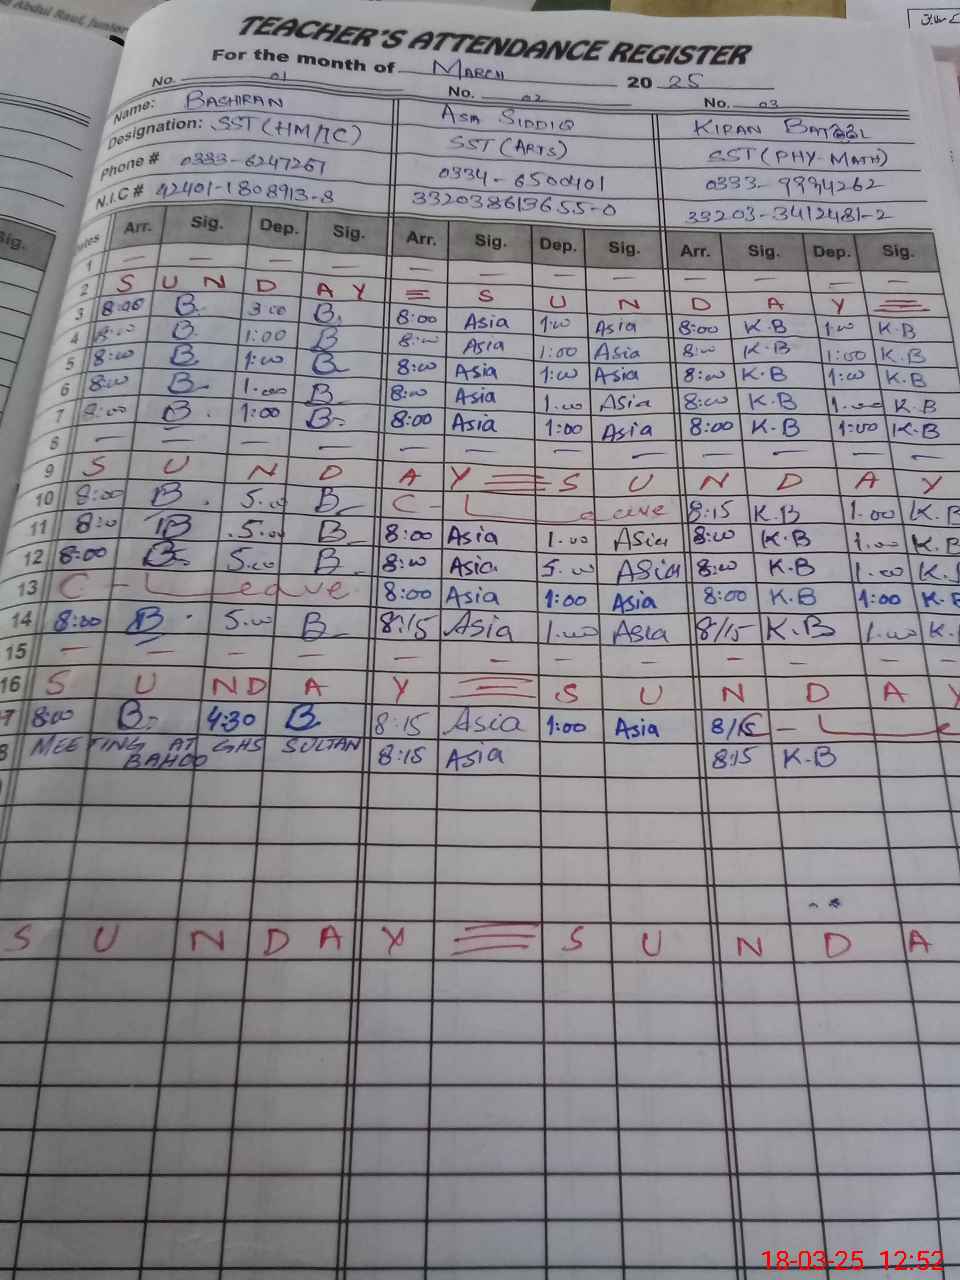 Abdul Rauf, Junior
TEACHER'S ATTENDANCE REGISTER
For the month of March 2025
No. 01 No. 02 No. 03
Name: BASHIRAN ASIA SIDDIQ KIRAN
Designation: SST (HM/IC) SST (ARTS) SST (PHY-MATH)
Phone # 0333-6247267 0334-6500401 0333-9994262
N.I.C # 42401-1808913-8 332038613655-0 33203-3412481-2
Sig. Arr. Sig. Dep. Sig. Arr. Sig. Dep. Sig. Arr. Sig. Dep. Sig.
1 — — — — — — — — — — — —
2 S U N D A Y S U N D A Y
3 8:00 B. 3:00 B. 8:00 Asia 1:00 Asia 8:00 K.B 1:00 K.B
4 8:00 B. 1:00 B 8:00 Asia 1:00 Asia 8:00 K.B 1:00 K.B
5 8:00 B 1:00 B 8:00 Asia 1:00 Asia 8:00 K.B 1:00 K.B
6 8:00 B 1:00 B 8:00 Asia 1:00 Asia 8:00 K.B 1:00 K.B
7 8:00 B. 1:00 B. 8:00 Asia 1:00 Asia 8:00 K.B 1:00 K.B
8 — — — — — — — — — — — —
9 S U N D A Y S U N D A Y
10 8:00 B. 5:00 B C-Leave 8:15 K.B 1:00 K.B
11 8:00 B 5:00 B 8:00 Asia 1:00 Asia 8:00 K.B 1:00 K.B
12 8:00 B 5:00 B 8:00 Asia 5:00 Asia 8:00 K.B 1:00 K.
13 C-Leave 8:00 Asia 1:00 Asia 8:00 K.B 1:00 K.B
14 8:00 B. 5:00 B 8:15 Asia 1:00 Asia 8/15 K.B 1:00 K.
15 — — — — — — — — — — — —
16 S U N D A Y S U N D A Y
7 8:00 B. 4:30 B 8:15 Asia 1:00 Asia 8/15 C-Le
8 MEETING AT GHS SULTAN 8:15 Asia 8:15 K.B
BAHOO
S U N D A Y S U N D A
18-03-25 12:52